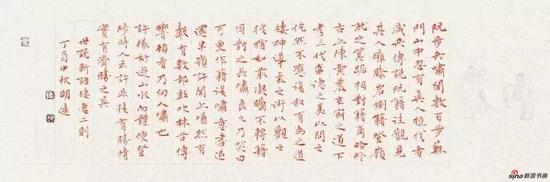 阮步兵嘯聞數百步蘇
門山中忽有真人樵伐者
咸共傳說阮籍往觀見
其人擁膝岩側籍登嶺
就之箕踞相對籍商略終
古上陳黃農玄寂之道下
考三代盛德之美以問之
仡然不應復敘有為之
棲神導氣之術以觀之
彼猶如前凝矚不轉籍
因對之長嘯良久乃笑曰
可更作籍復嘯意盡退
還半嶺許聞上然有
聲如數部鼓吹林谷傳
響顧看乃向人嘯也
許掾好遊山水而體便登
陟時人云許非徒有勝情
實有濟勝之具
世說新語棲逸二則
丁酉中秋明遠
sina 新浪书画